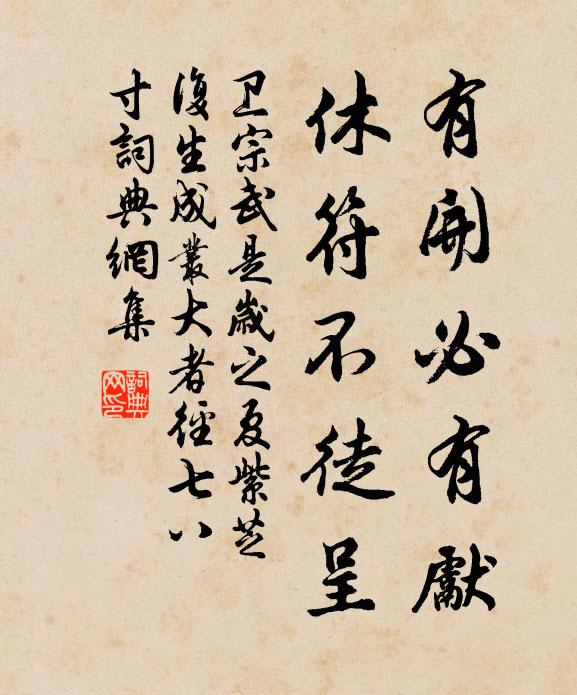 有開必有獻
休符不徒呈
卫宗武是歲之夏紫芝
復生成叢大者徑七八
寸詞典網集
詞典网印